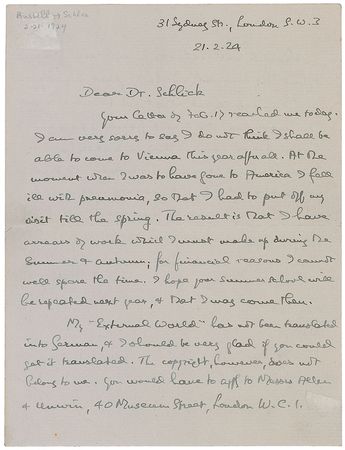 Russell to Schlick
2-21-1924
31 Sydney Str., London S.W.3
21.2.24
Dear Dr. Schlick
Your letter of Feb. 17 reached me today.
I am very sorry to say I do not think I shall be
able to come to Vienna this year after all. At the
moment when I was to have gone to America I fell
ill with pneumonia, so that I had to put off my
visit till the spring. The result is that I have
arrears of work which I must make up during the
summer & autumn; for financial reasons I cannot
well spare the time. I hope your summer school will
be repeated next year, & that I may come then.
My "External World" has not been translated
into German, & I should be very glad if you could
get it translated. The copyright, however, does not
belong to me. You would have to apply to Messrs Allen
& Unwin, 40 Museum Street, London W.C.1.